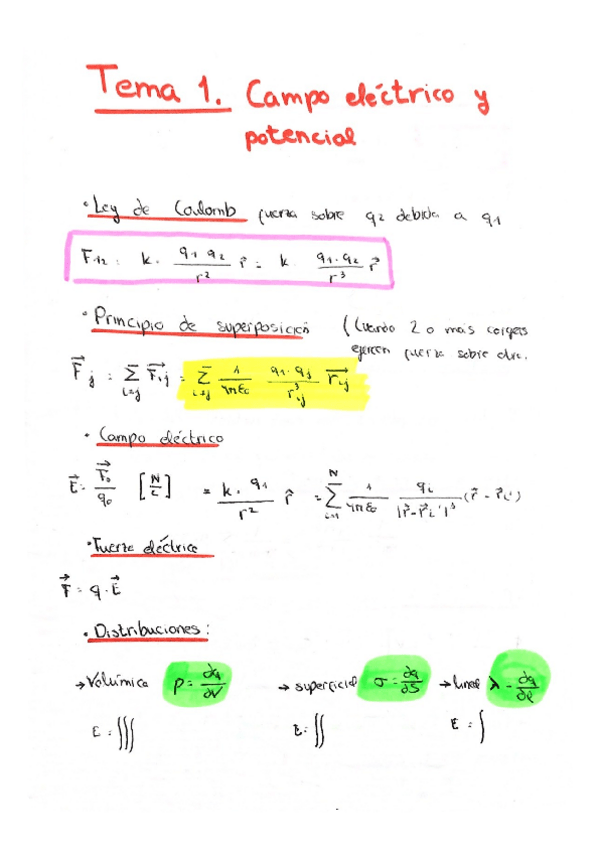 Tema 1. Campo eléctrico y
potencial
• Ley de Coulomb fuerza sobre q2 debida a q1
F12 = k · q1 q2 / r² r̂ = k · q1 · q2 / r³ r⃗
• Principio de superposición (Cuando 2 o más cargas
ejercen fuerza sobre otra.
F⃗j = Σ i≠j F⃗ij = Σ i≠j 1/4πε0 q1 · qj / r³ij r⃗ij
• Campo eléctrico
E⃗ = F⃗0 / q0 [N/C] = k · q1 / r² r̂ = Σ i=1 N 1/4πε0 qi / |r⃗ - r⃗i'|³ (r⃗ - r⃗i')
• Fuerza eléctrica
F⃗ = q · E⃗
• Distribuciones:
→ Volúmica ρ = dq/dV → superficial σ = dq/dS → lineal λ = dq/dl
E = ∫∫∫ E = ∫∫ E = ∫